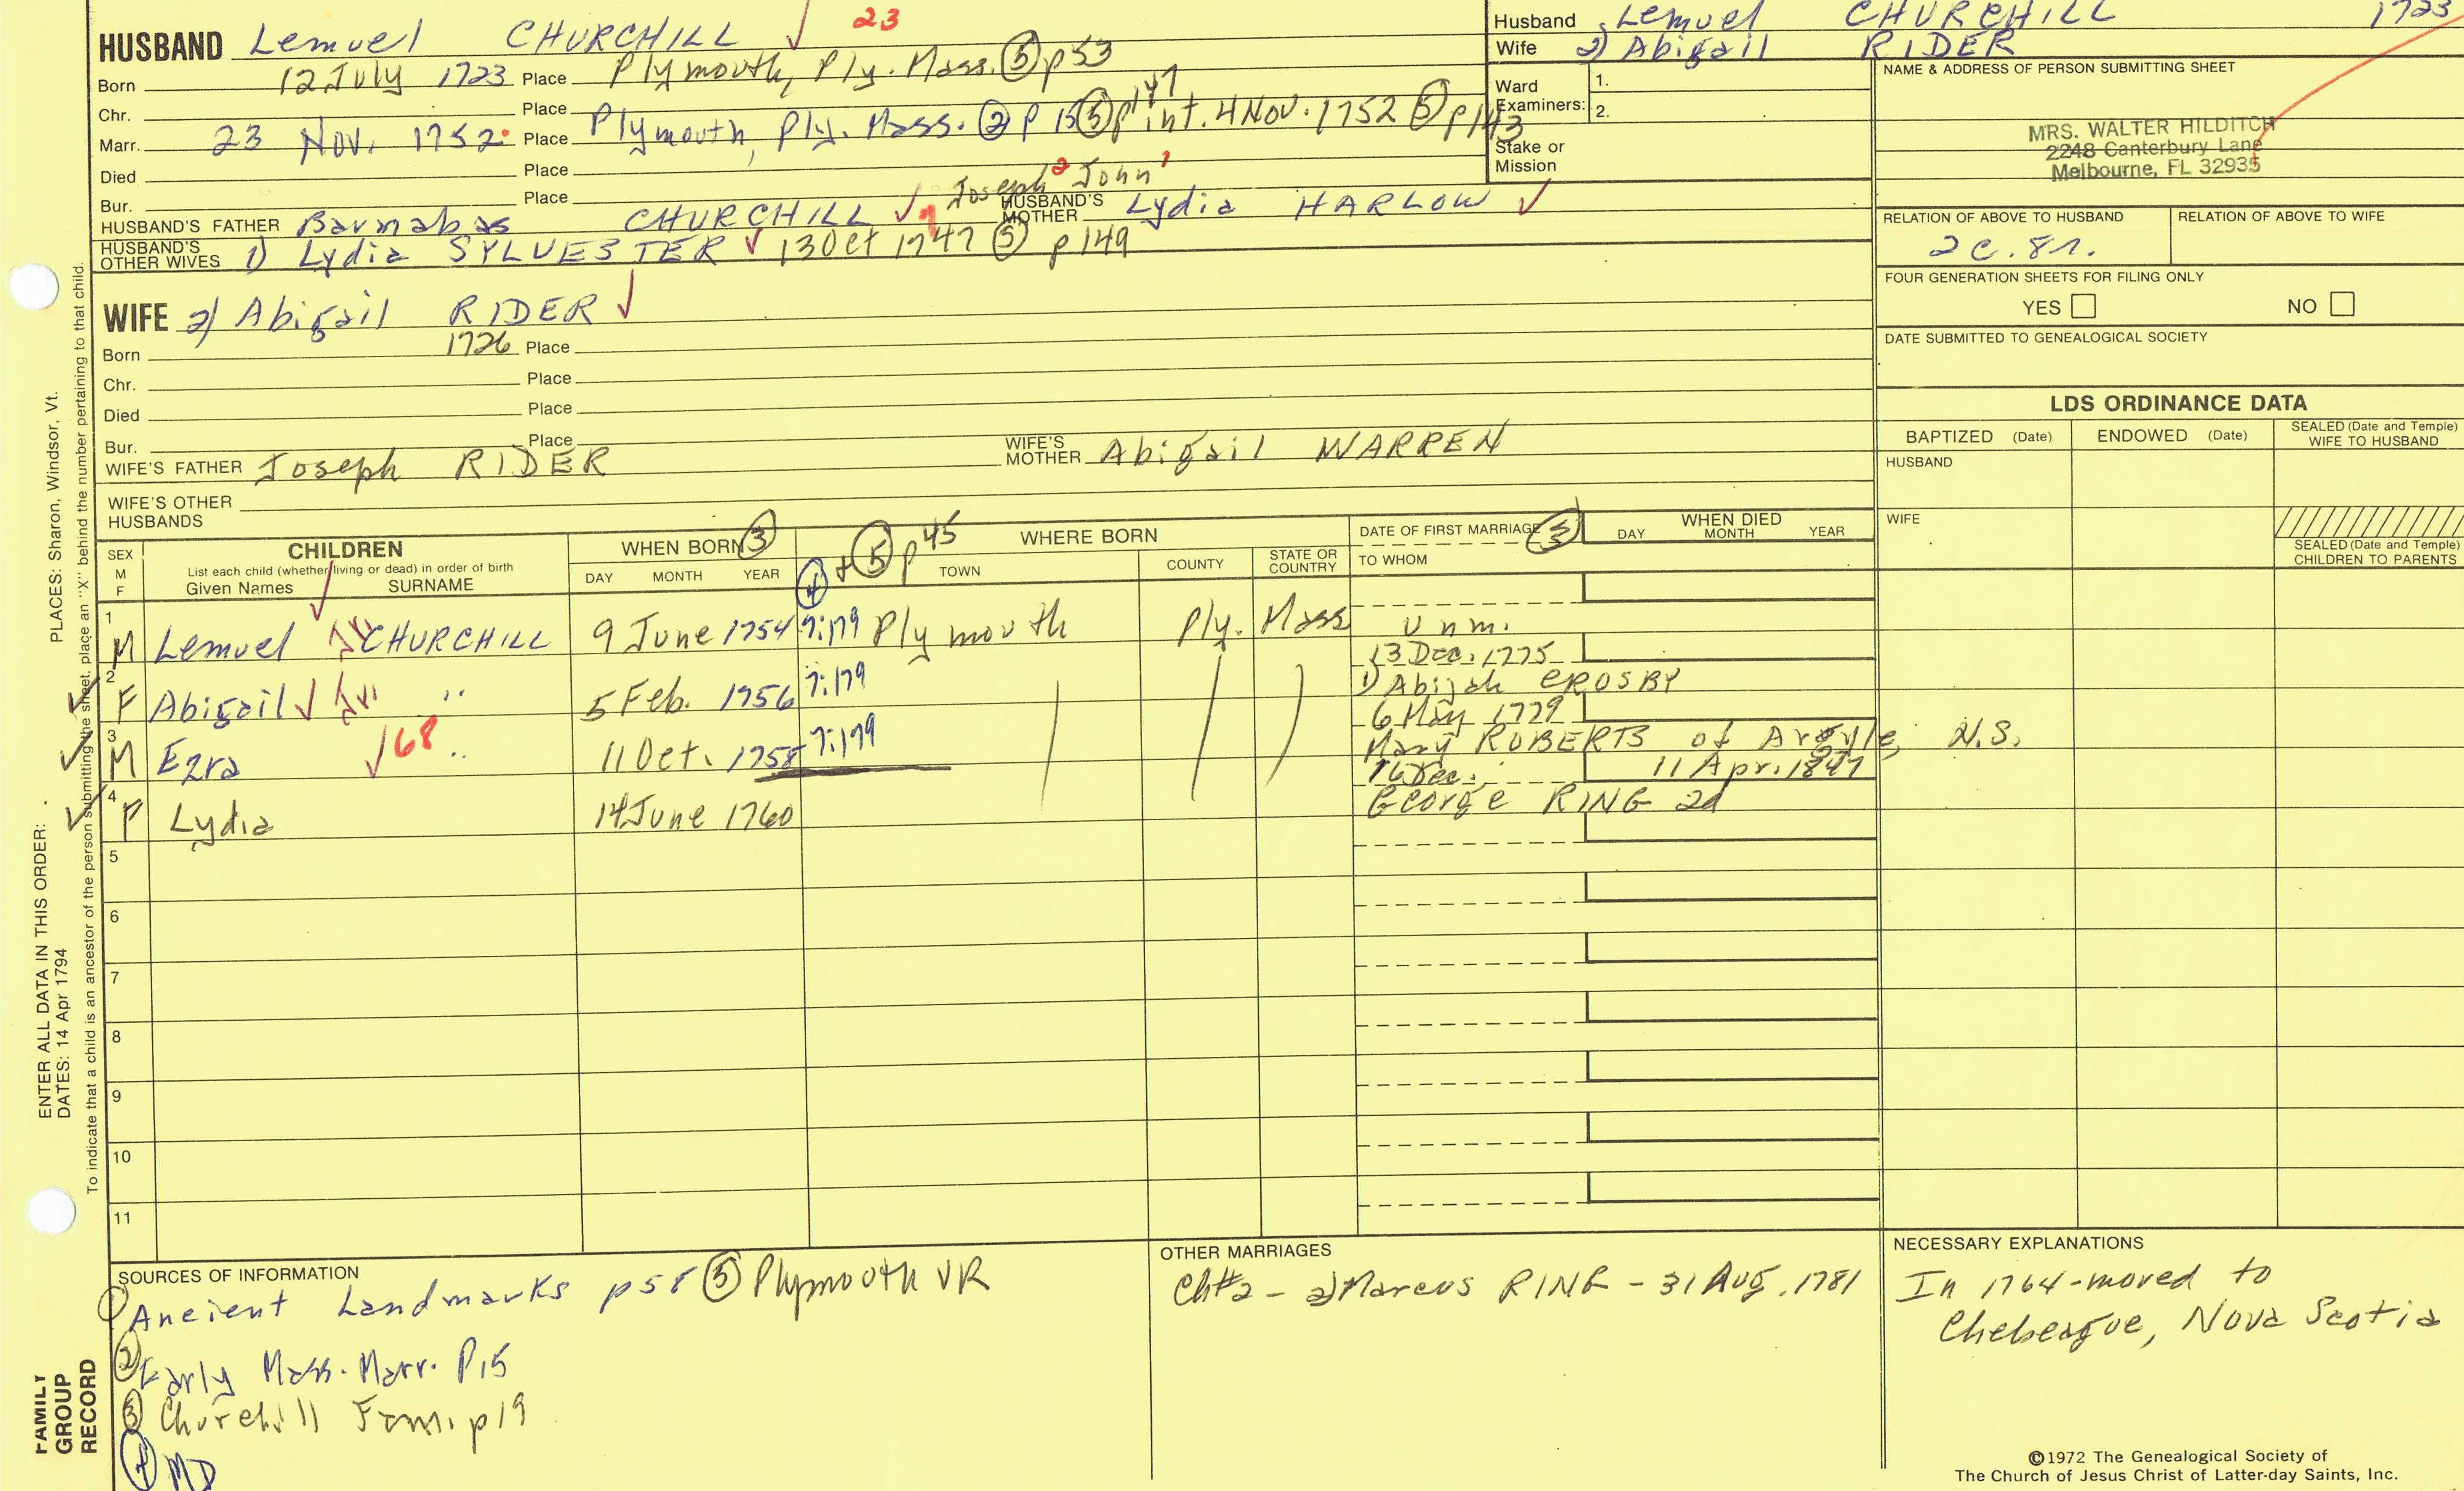 HUSBAND Lemuel CHURCHILL ✓ 23
Born 12 July 1723 Place Plymouth, Ply. Mass. ⑤ p53
Chr. Place
Marr. 23 Nov. 1752 Place Plymouth, Ply. Mass. ② p 15 ⑤ p147 int. 4 Nov. 1752 ⑤ p143
Died Place
Bur. Place
Joseph 2 John 1
HUSBAND'S FATHER Barnabas CHURCHILL ✓ HUSBAND'S MOTHER Lydia HARLOW ✓
HUSBAND'S OTHER WIVES 1) Lydia SYLVESTER ✓ 13 Oct 1747 ⑤ p149
WIFE 2) Abigail RIDER ✓
Born 1726 Place
Chr. Place
Died Place
Bur. Place
WIFE'S FATHER Joseph RIDER WIFE'S MOTHER Abigail WARREN
WIFE'S OTHER HUSBANDS
Husband Lemuel CHURCHILL 1723
Wife 2) Abigail RIDER
Ward Examiners: 1.
2.
Stake or Mission
NAME & ADDRESS OF PERSON SUBMITTING SHEET
MRS. WALTER HILDITCH
2248 Canterbury Lane
Melbourne, FL 32935
RELATION OF ABOVE TO HUSBAND RELATION OF ABOVE TO WIFE
2c. 8r.
FOUR GENERATION SHEETS FOR FILING ONLY
YES NO
DATE SUBMITTED TO GENEALOGICAL SOCIETY
LDS ORDINANCE DATA
BAPTIZED (Date) ENDOWED (Date) SEALED (Date and Temple) WIFE TO HUSBAND
HUSBAND
WIFE
SEALED (Date and Temple) CHILDREN TO PARENTS
SEX M F
CHILDREN
List each child (whether living or dead) in order of birth
Given Names SURNAME
WHEN BORN ③
DAY MONTH YEAR
④ + ⑤ p45 WHERE BORN
TOWN COUNTY STATE OR COUNTRY
DATE OF FIRST MARRIAGE ③
TO WHOM
WHEN DIED
DAY MONTH YEAR
1 M Lemuel CHURCHILL 9 June 1754 7:179 Plymouth Ply. Mass unm.
13 Dec. 1775
2 F Abigail ✓ " 5 Feb. 1756 7:179 1) Abijah CROSBY
6 May 1779
3 M Ezra ✓ 68 " 11 Oct. 1758 7:179 Mary ROBERTS of Argyle, N.S.
16 Dec. 11 Apr. 1847
4 F Lydia 14 June 1760 George RING 2d
5
6
7
8
9
10
11
SOURCES OF INFORMATION
① Ancient Landmarks p58 ⑤ Plymouth VR
② Early Mass. Marr. P15
③ Churchill Fam. p19
④ MD
OTHER MARRIAGES
Ch#2 - 2) Marcus RING - 31 Aug. 1781
NECESSARY EXPLANATIONS
In 1764 - moved to
Chebeague, Nova Scotia
©1972 The Genealogical Society of
The Church of Jesus Christ of Latter-day Saints, Inc.
ENTER ALL DATA IN THIS ORDER:
DATES: 14 Apr 1794
PLACES: Sharon, Windsor, Vt.
To indicate that a child is an ancestor of the person submitting the sheet, place an "X" behind the number pertaining to that child.
FAMILY
GROUP
RECORD